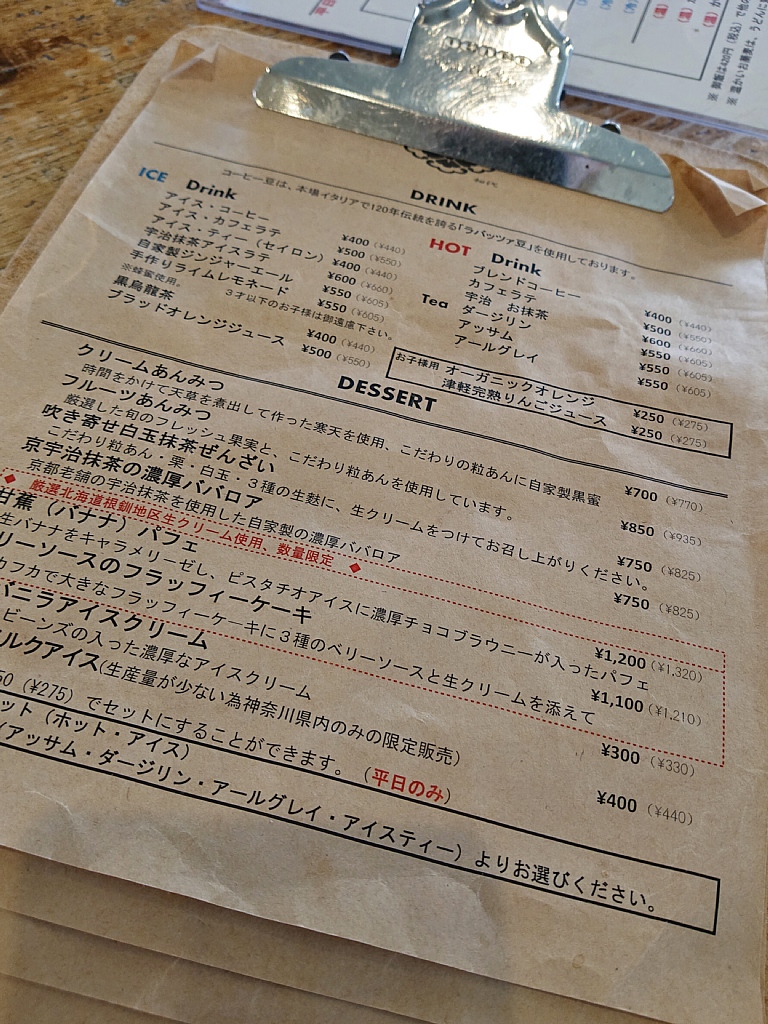 DRINK
コーヒー豆は、本場イタリアで120年伝統を誇る「ラバッツァ豆」を使用しております。
ICE Drink
アイス・コーヒー ¥400 (¥440)
アイス・カフェラテ ¥500 (¥550)
アイス・ティー（セイロン） ¥400 (¥440)
宇治抹茶アイスラテ ¥600 (¥660)
自家製ジンジャーエール ¥550 (¥605)
手作りライムレモネード ¥550 (¥605)
※蜂蜜使用。 3才以下のお子様は御遠慮下さい。
黒烏龍茶 ¥400 (¥440)
ブラッドオレンジジュース ¥500 (¥550)
HOT Drink
ブレンドコーヒー ¥400 (¥440)
カフェラテ ¥500 (¥550)
宇治 お抹茶 ¥600 (¥660)
Tea ダージリン ¥550 (¥605)
アッサム ¥550 (¥605)
アールグレイ ¥550 (¥605)
お子様用 オーガニックオレンジ ¥250 (¥275)
津軽完熟りんごジュース ¥250 (¥275)
DESSERT
クリームあんみつ ¥700 (¥770)
時間をかけて天草を煮出して作った寒天を使用、こだわりの粒あんに自家製黒蜜
フルーツあんみつ ¥850 (¥935)
厳選した旬のフレッシュ果実と、こだわり粒あんを使用しています。
吹き寄せ白玉抹茶ぜんざい ¥750 (¥825)
こだわり粒あん・栗・白玉・３種の生麩に、生クリームをつけてお召し上がりください。
京宇治抹茶の濃厚ババロア ¥750 (¥825)
京都老舗の宇治抹茶を使用した自家製の濃厚ババロア
◆ 厳選北海道根釧地区生クリーム使用、数量限定 ◆
甘蕉（バナナ）パフェ ¥1,200 (¥1,320)
生バナナをキャラメリーゼし、ピスタチオアイスに濃厚チョコブラウニーが入ったパフェ
リーソースのフラッフィーケーキ ¥1,100 (¥1,210)
カフカで大きなフラッフィーケーキに３種のベリーソースと生クリームを添えて
バニラアイスクリーム ¥300 (¥330)
ビーンズの入った濃厚なアイスクリーム
ルクアイス(生産量が少ない為神奈川県内のみの限定販売) ¥400 (¥440)
50 (¥275) でセットにすることができます。（平日のみ）
ット（ホット・アイス）
(アッサム・ダージリン・アールグレイ・アイスティー）よりお選びください。